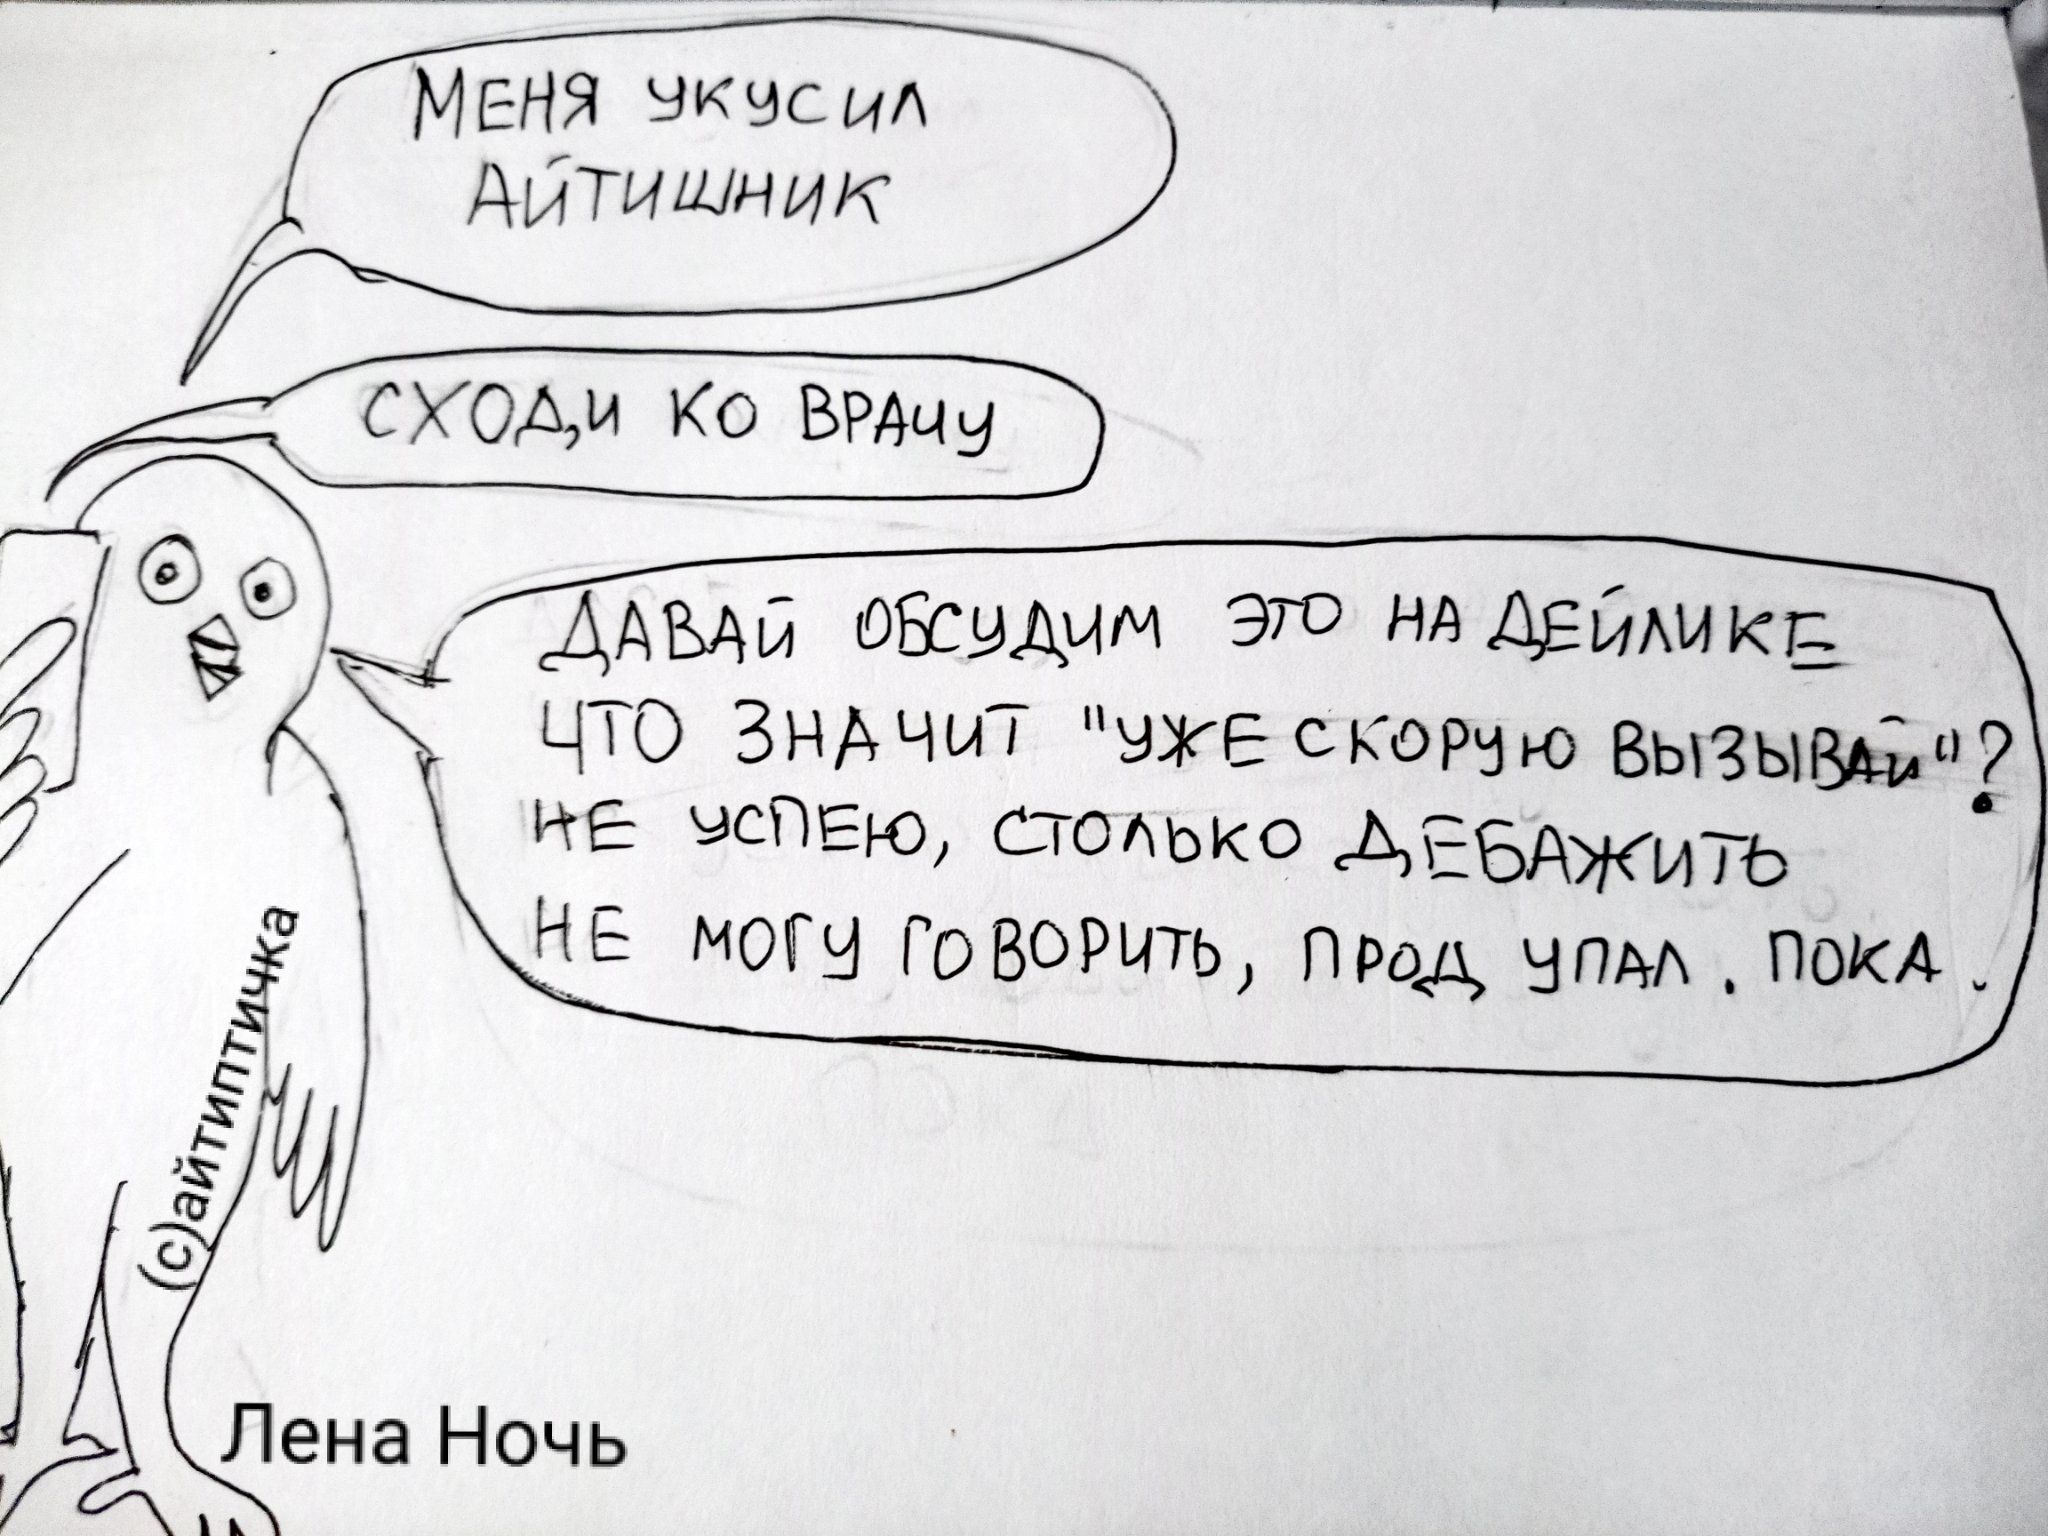 МЕНЯ УКУСИЛ
АЙТИШНИК
СХОДИ КО ВРАЧУ
ДАВАЙ ОБСУДИМ ЭТО НА ДЕЙЛИКЕ
ЧТО ЗНАЧИТ "УЖЕ СКОРУЮ ВЫЗЫВАЙ"?
НЕ УСПЕЮ, СТОЛЬКО ДЕБАЖИТЬ
НЕ МОГУ ГОВОРИТЬ, ПРОД УПАЛ. ПОКА.
(с)айтиптичка
Лена Ночь